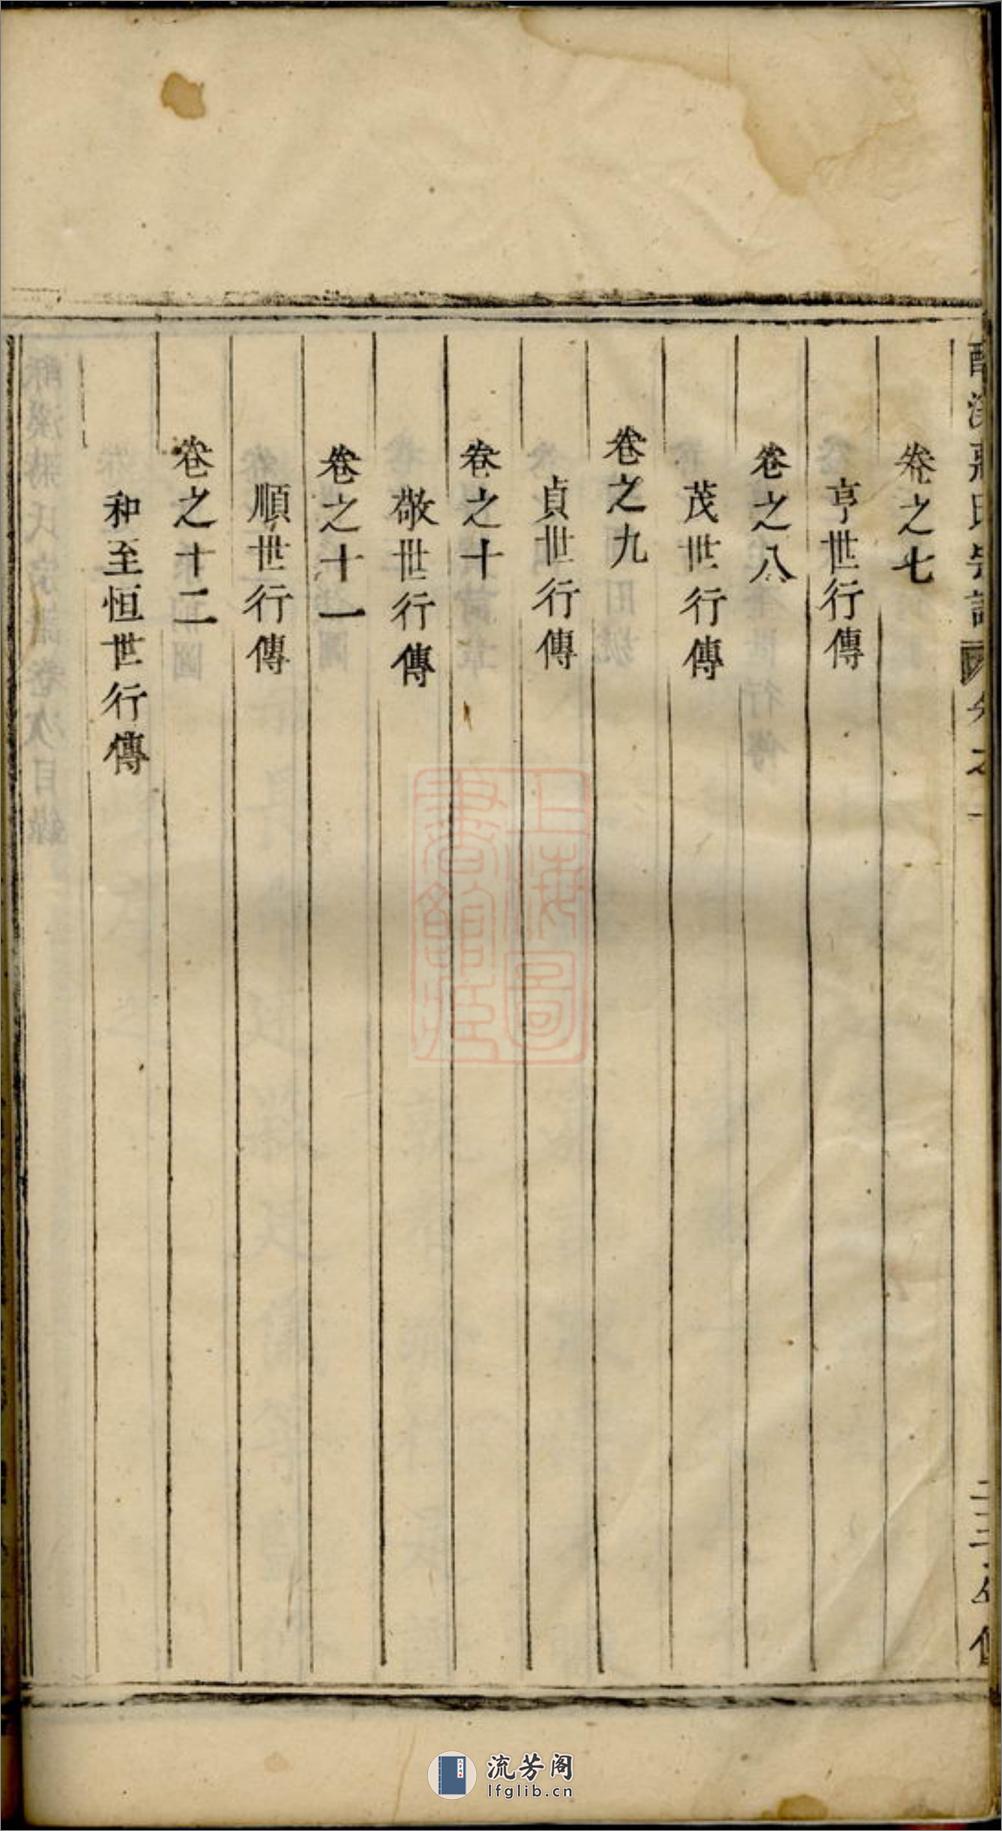 卷之七
亨世行傳
卷之八
茂世行傳
卷之九
貞世行傳
卷之十
敬世行傳
卷之十一
順世行傳
卷之十二
和至恒世行傳
上海圖
書館藏
流芳阁
lfglib.cn